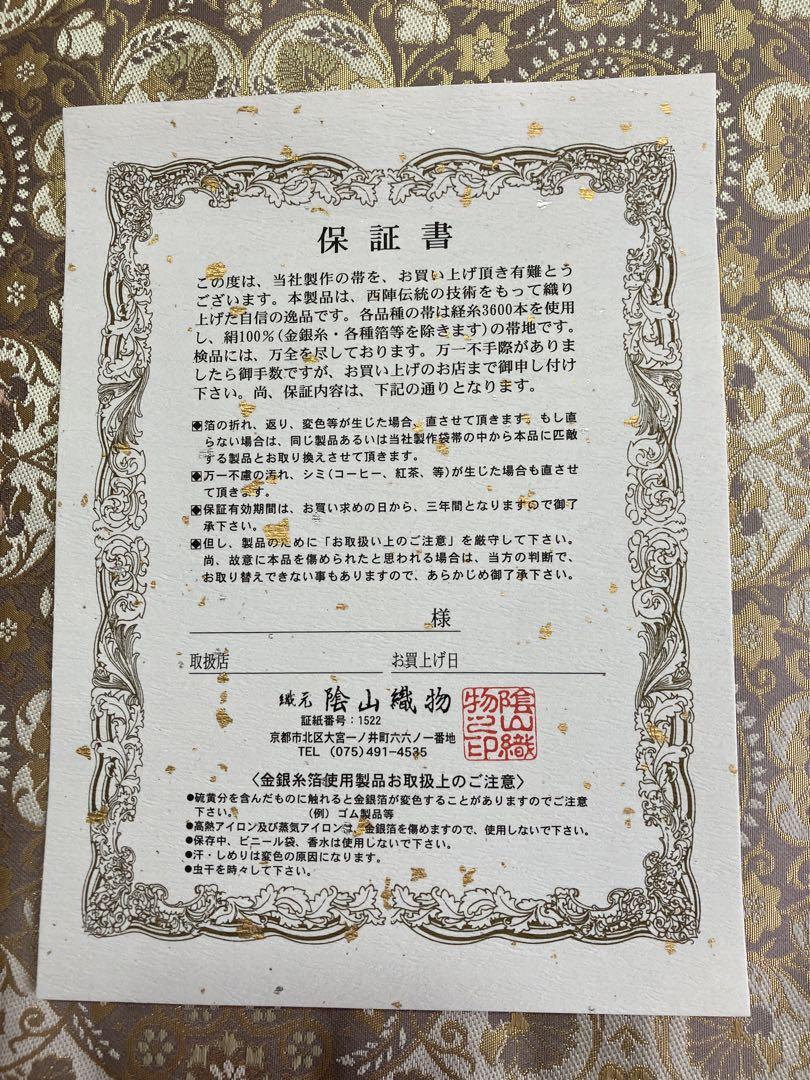 保証書
この度は、当社製作の帯を、お買い上げ頂き有難とう
ございます。本製品は、西陣伝統の技術をもって織り
上げた自信の逸品です。各品種の帯は経糸3600本を使用
し、絹100％(金銀糸・各種箔等を除きます)の帯地です。
検品には、万全を尽しております。万一不手際がありま
したら御手数ですが、お買い上げのお店まで御申し付け
下さい。尚、保証内容は、下記の通りとなります。
箔の折れ、返り、変色等が生じた場合、直させて頂きます。もし直
らない場合は、同じ製品あるいは当社製作袋帯の中から本品に匹敵
する製品とお取り換えさせて頂きます。
万一不慮の汚れ、シミ(コーヒー、紅茶、等)が生じた場合も直させ
て頂きます。
保証有効期間は、お買い求めの日から、三年間となりますので御了
承下さい。
但し、製品のために「お取扱い上のご注意」を厳守して下さい。
尚、故意に本品を傷められたと思われる場合は、当方の判断で、
お取り替えできない事もありますので、あらかじめ御了承下さい。
様
取扱店 お買上げ日
織元 陰山織物
証紙番号：1522
京都市北区大宮一ノ井町六六ノ一番地
TEL (075)491-4535
陰山織
物之印
〈金銀糸箔使用製品お取扱上のご注意〉
●硫黄分を含んだものに触れると金銀箔が変色することがありますのでご注意
下さい。 (例) ゴム製品等
●高熱アイロン及び蒸気アイロンは、金銀箔を傷めますので、使用しないで下さい。
●保存中、ビニール袋、香水は使用しないで下さい。
●汗・しめりは変色の原因になります。
●虫干を時々して下さい。